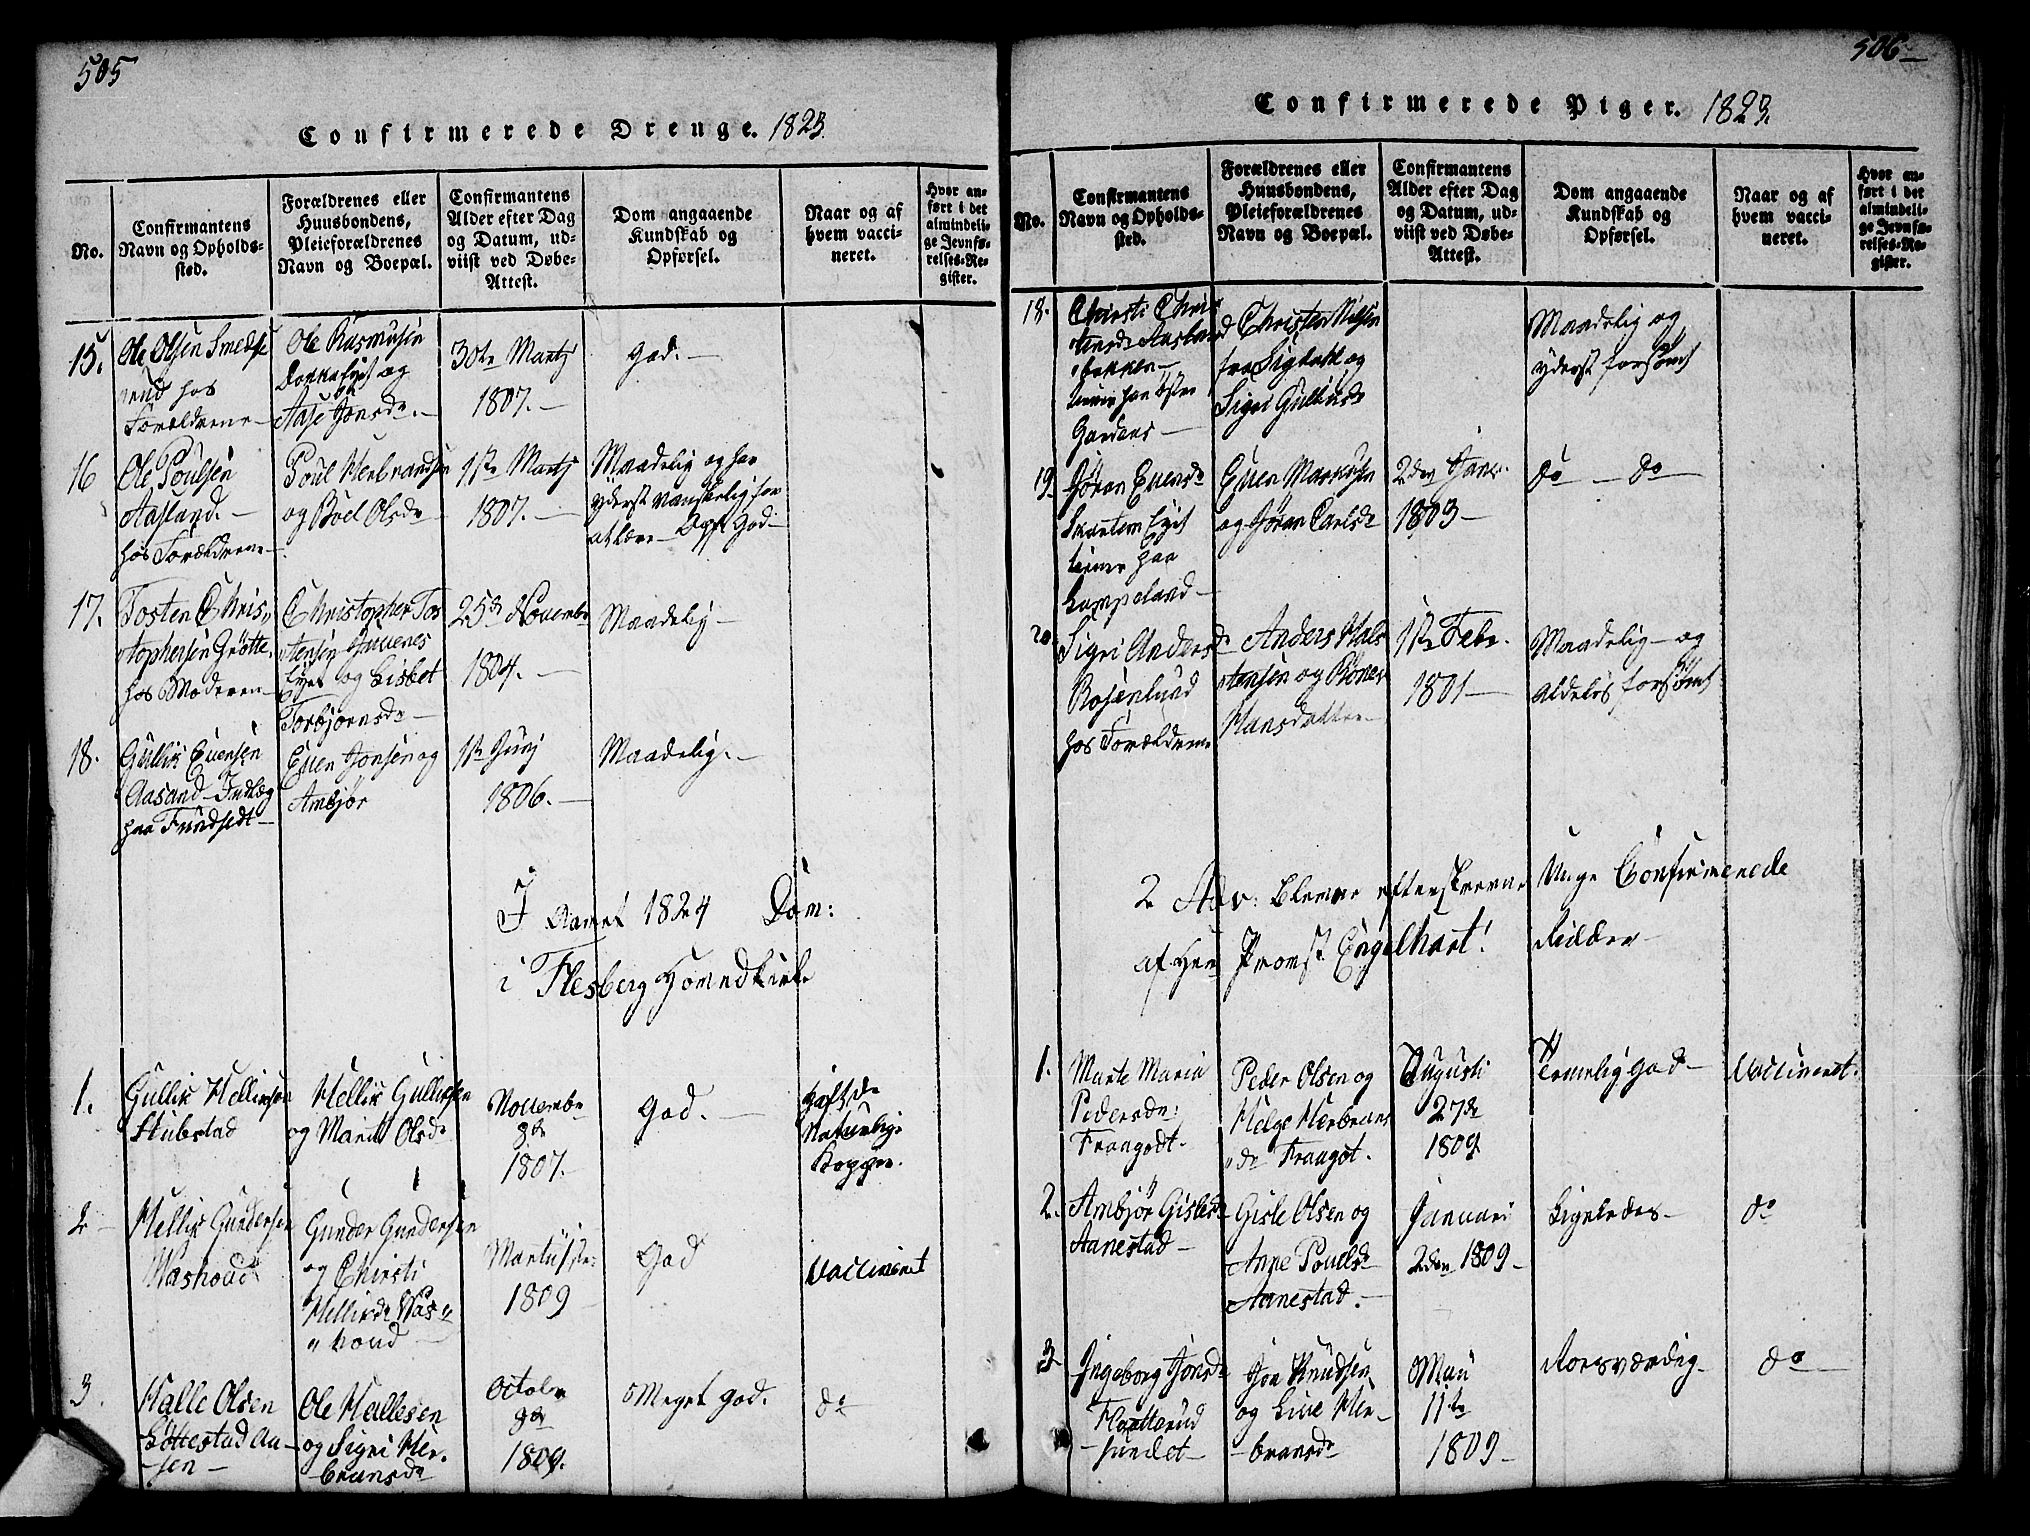 505
Confirmerede Drenge. 1823.
No.
Confirmantens
Navn og Opholds-
sted.
Forældrenes eller
Huusbondens,
Pleieforældrenes
Navn og Boepæl.
Confirmantens
Alder efter Dag
og Datum, ud-
viist ved Døbe-
Attest.
Dom angaaende
Kundskab og
Opførsel.
Naar og af
hvem vacci-
neret.
Hvor an-
ført i det
almindeli-
ge Jevnfø-
relses-Re-
gister.
15.
Ole Olsen Smedse
rud hos
Forældrene
Ole Rasmusen
Dokka Eyet og
Aase Jonsdr.
30te Martj
1807.
God.
16
Ole Poulsen
Aasland.
hos Forældrene
Poul Herbrandsen
og Boel Olsdr
1ste Martj
1807.
Maadelig og har
yderst vanskelig for
at lære - Opf. God
17.
Tosten Chris„
tophersen Grötte.
hos Moderen
Christopher Tos
tensen
Eyet og Lisbet
Torbjornsdr
25de Novembr
1804.
Maadelig
18.
Gullik Evensen
Aasand - Indlæg
paa Fundset
Even Jonsen og
Ambjør
1ste Junj
1806.
Maadelig.
I Aaret 1824 Dom:
i Flesberg Hovedkirke
1.
Gullik Hellissen
Stubstad
Hellik Gulliksen
og Marit Olsdr
Novembr
8de
1807.
God.
Haft de
Naturlige
Kopper.
2
Hellik Gundersen
Washoud
Gunder Gundersen
og Chirsti
Helliksdr Was„
„houd
Martii
1809
God
Vaccineret
3.
Halle Olsen
Göttestad Aa-
sen
Ole Hallesen
og Sigri Her.
bransdr
Octobr
8de
1809.
Meget god.
do
506
Confirmerede Piger. 1823.
No.
Confirmantens
Navn og Opholds-
sted.
Forældrenes eller
Huusbondens,
Pleieforældrenes
Navn og Boepæl.
Confirmantens
Alder efter Dag
og Datum, ud-
viist ved Døbe-
Attest.
Dom angaaende
Kundskab og
Opførsel.
Naar og af
hvem vacci-
neret.
Hvor an-
ført i det
almindeli-
ge Jevnfø-
relses-Re-
gister.
18.
Chirsti Chris
tensdr Aasland
bakken
tiener paa Østre
Gardaas
Christen Nilsen
fra Sigdahl og
Sigri Gulbrsdr
Maadelig og
yderst forsømt
19
Jöran Evensdr
Eyet
tiener paa
Lampeland
Even Markusen
og Jöran Carlsdr
2den Janr.
1803
do - do
20
Sigri Andersdr
Rosenlund
hos Forældrene
Anders Hals
tensen og Röner
Hansdatter
1ste Febr.
1801
Maadelig og
aldeles forsømt
2 Adv: bleve efterskrevne Unge Confirmerede
af Hrr Provst Engelhart! Ridder
1.
Marte Maria
Pedersdr:
Fraagodt.
Peder Olsen og
Helge Herbrans
„dr Fraagot.
Augusti
27de
1809
Temelig god
Vaccineret.
2.
Ambjör Gislesdr
Aanestad
Gisle Olsen og
Anne Pouelsdr
Aanestad.
Januari
2den 1809
Ligeledes
do
3
Ingeborg Jonsdr
Flaatterud
Jon Knudsen
og Live Her-
bransdr
Maii
11te
1809
Roesværdig
do